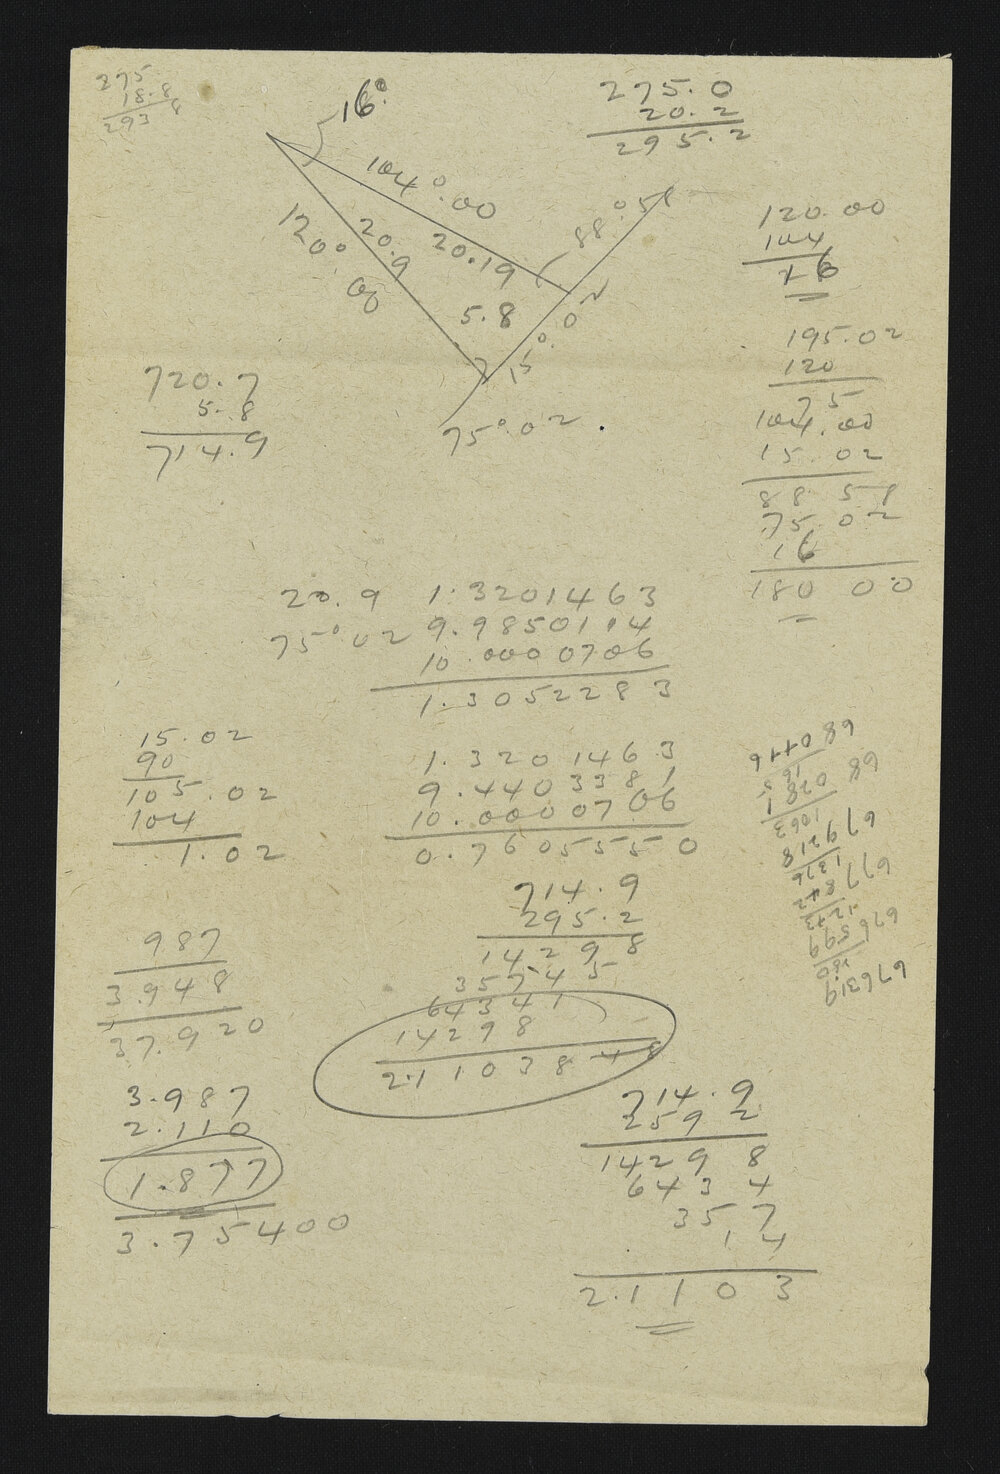 275
18.8
293
16°.
275.0
20.2
295.2
104°.00
120°
00
20.9
20.19
88°.58
5.8
15°.02
75°.02.
120.00
104
16
195.02
120
75
104.00
15.02
88 58
75.02
16
180 00
720.7
5.8
714.9
20.9 1.3201463
75°.02 9.9850114
10.0000706
1.3052283
15.02
90
105.02
104
1.02
1.3201463
9.4403381
10.0000706
0.7605550
68 0446
68 0281
1063
67 9218
1376
677842
676599
676319
714.9
295.2
14298
35745
64341
14298
2.1103848
987
3.948
37.920
3.987
2.110
1.877
3.75400
714.9
2592
14298
6434
357
14
2.1103